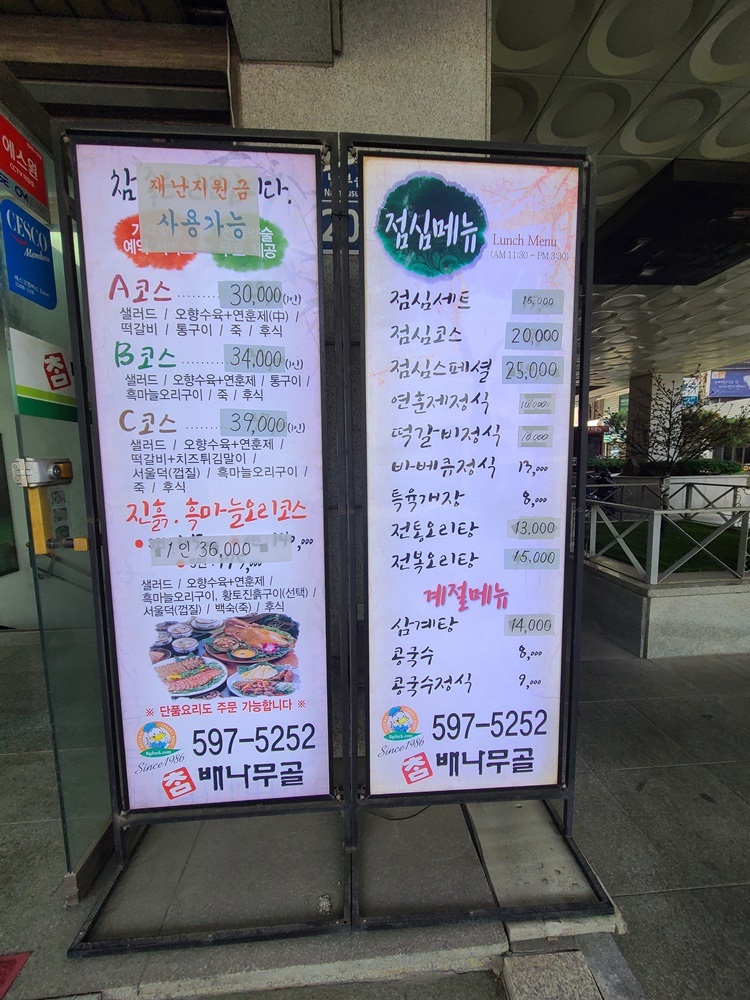 에스원
CESCO
Members
참
재난지원금
다.
사용가능
A코스 ........ 30,000(1인)
샐러드 / 오향수육+연훈제(中) /
떡갈비 / 통구이 / 죽 / 후식
B코스 ........ 34,000(1인)
샐러드 / 오향수육+연훈제 / 통구이 /
흑마늘오리구이 / 죽 / 후식
C코스 ........ 39,000(1인)
샐러드 / 오향수육+연훈제 /
떡갈비+치즈튀김말이 /
서울덕(껍질) / 흑마늘오리구이 /
죽 / 후식
진흙.흑마늘오리코스
1인 36,000
샐러드 / 오향수육+연훈제 /
흑마늘오리구이, 황토진흙구이(선택) /
서울덕(껍질) / 백숙(죽) / 후식
※ 단품요리도 주문 가능합니다 ※
597-5252
Since1986
참 배나무골
점심메뉴
Lunch Menu
(AM 11:30 ~ PM 3:30)
점심세트 16,000
점심코스 20,000
점심스페셜 25,000
연훈제정식
떡갈비정식
바베큐정식 13,000
특육개장 8,000
전통오리탕 13,000
전복오리탕 15,000
계절메뉴
삼계탕 14,000
콩국수 8,000
콩국수정식 9,000
597-5252
Since1986
참 배나무골
참